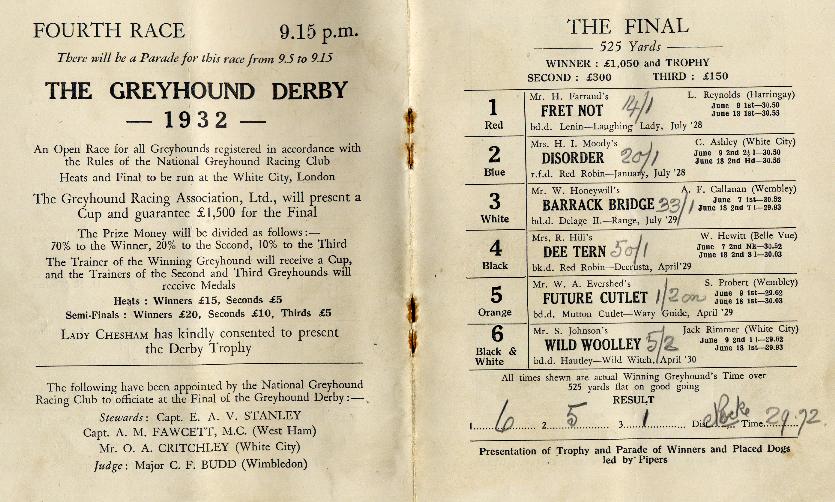 FOURTH RACE 9.15 p.m.
There will be a Parade for this race from 9.5 to 9.15
THE GREYHOUND DERBY
— 1932 —
An Open Race for all Greyhounds registered in accordance with
the Rules of the National Greyhound Racing Club
Heats and Final to be run at the White City, London
The Greyhound Racing Association, Ltd., will present a
Cup and guarantee £1,500 for the Final
The Prize Money will be divided as follows:—
70% to the Winner, 20% to the Second, 10% to the Third
The Trainer of the Winning Greyhound will receive a Cup,
and the Trainers of the Second and Third Greyhounds will
receive Medals
Heats : Winners £15, Seconds £5
Semi-Finals : Winners £20, Seconds £10, Thirds £5
LADY CHESHAM has kindly consented to present
the Derby Trophy
The following have been appointed by the National Greyhound
Racing Club to officiate at the Final of the Greyhound Derby:—
Stewards: Capt. E. A. V. STANLEY
Capt. A. M. FAWCETT, M.C. (West Ham)
Mr. O. A. CRITCHLEY (White City)
Judge: Major C. F. BUDD (Wimbledon)
THE FINAL
525 Yards
WINNER : £1,050 and TROPHY
SECOND : £300 THIRD : £150
1 Red
Mr. H. Farrand's L. Reynolds (Harringay)
FRET NOT 14/1 June 8 1st—30.50
June 18 1st—30.53
bd.d. Lenin—Laughing Lady, July '28
2 Blue
Mrs. H. I. Moody's C. Ashley (White City)
DISORDER 20/1 June 9 2nd 2½ l—30.50
June 18 2nd Hd—30.56
r.f.d. Red Robin—January, July '28
3 White
Mr. W. Honeywill's A. F. Callanan (Wembley)
BARRACK BRIDGE 33/1 June 7 1st—30.52
June 18 2nd 7 l—29.93
bd.d. Delage II.—Range, July '29
4 Black
Mrs. R. Hill's W. Hewitt (Belle Vue)
DEE TERN 50/1 June 7 2nd Nk—30.52
June 18 2nd 8 l—30.03
bk.d. Red Robin—Decrusta, April '29
5 Orange
Mr. W. A. Evershed's S. Probert (Wembley)
FUTURE CUTLET 1/2 on June 9 1st—29.62
June 18 1st—30.03
bd.d. Mutton Cutlet—Wary Guide, April '29
6 Black & White
Mr. S. Johnson's Jack Rimmer (White City)
WILD WOOLLEY 5/2 June 9 2nd 1 l—29.62
June 18 1st—29.93
bd.d. Hautley—Wild Witch, April '30
All times shewn are actual Winning Greyhound's Time over
525 yards flat on good going
RESULT
1. 6 2. 5 3. 1 Dis. Neck Time 29.72
Presentation of Trophy and Parade of Winners and Placed Dogs
led by Pipers